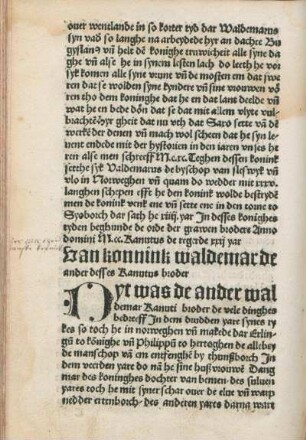 ouer wentlande in so korter tyd dar Waldemarus
syn vad so langhe na arbeydede hyr an dachte Bu
gyslaus vn helt de konighe truwicheit alle syne da
ghe vn alse he in synem lesten lach do leeth he vor
syk komen alle syne vrunt vn de mosten em dat swe
ren dat se wolden syne kyndere vn sine vrouwen vo
ren tho dem koninghe dat he en dat lant deelde vn
wat he en bede don dat se dat mit allem vlyte vul
brachten hyr gheit dat nu vth dat Saxo sette vn de
werke der denen vn mach wol scheen dat he syn le
nent endede mit der hystorien in den iaren vnses he
ren alse men schreeff M.c.rc. Teghen dessen konink
sette syk Valdemarus de byschop van sleswyk vn
vlo in Norweghen vn quam do wedder mit xxxv.
langhen schepen efft he den konink wolde bestryde
men de konink venk ene vn sette ene in den torne to
Syoborch dar sath he xiiij. yar In desses konighes
tyden beghunde de orde der grawen broders Anno
domini M.cc. Kanutus de regerde xxj yar
Uan konnink waldemar de
ander desses Kanutus broder
Dyt was de ander wal
demar Kanuti broder de vele dinghes
bedreff In dem drudden yare synes ry
kes so toch he in norweghen vn makede dar Erlin
gu to konighe vn Philippu to hertoghen de alle bey
de manschop va em entfenghe by thunsborch In
dem veerden yare do nam he sine husvrouwe Dang
mar des koninghes dochter van bemen des suluen
yares toch he mit syner schar ouer de elue vn wan
nedder ertenborch des anderen yares darna wart